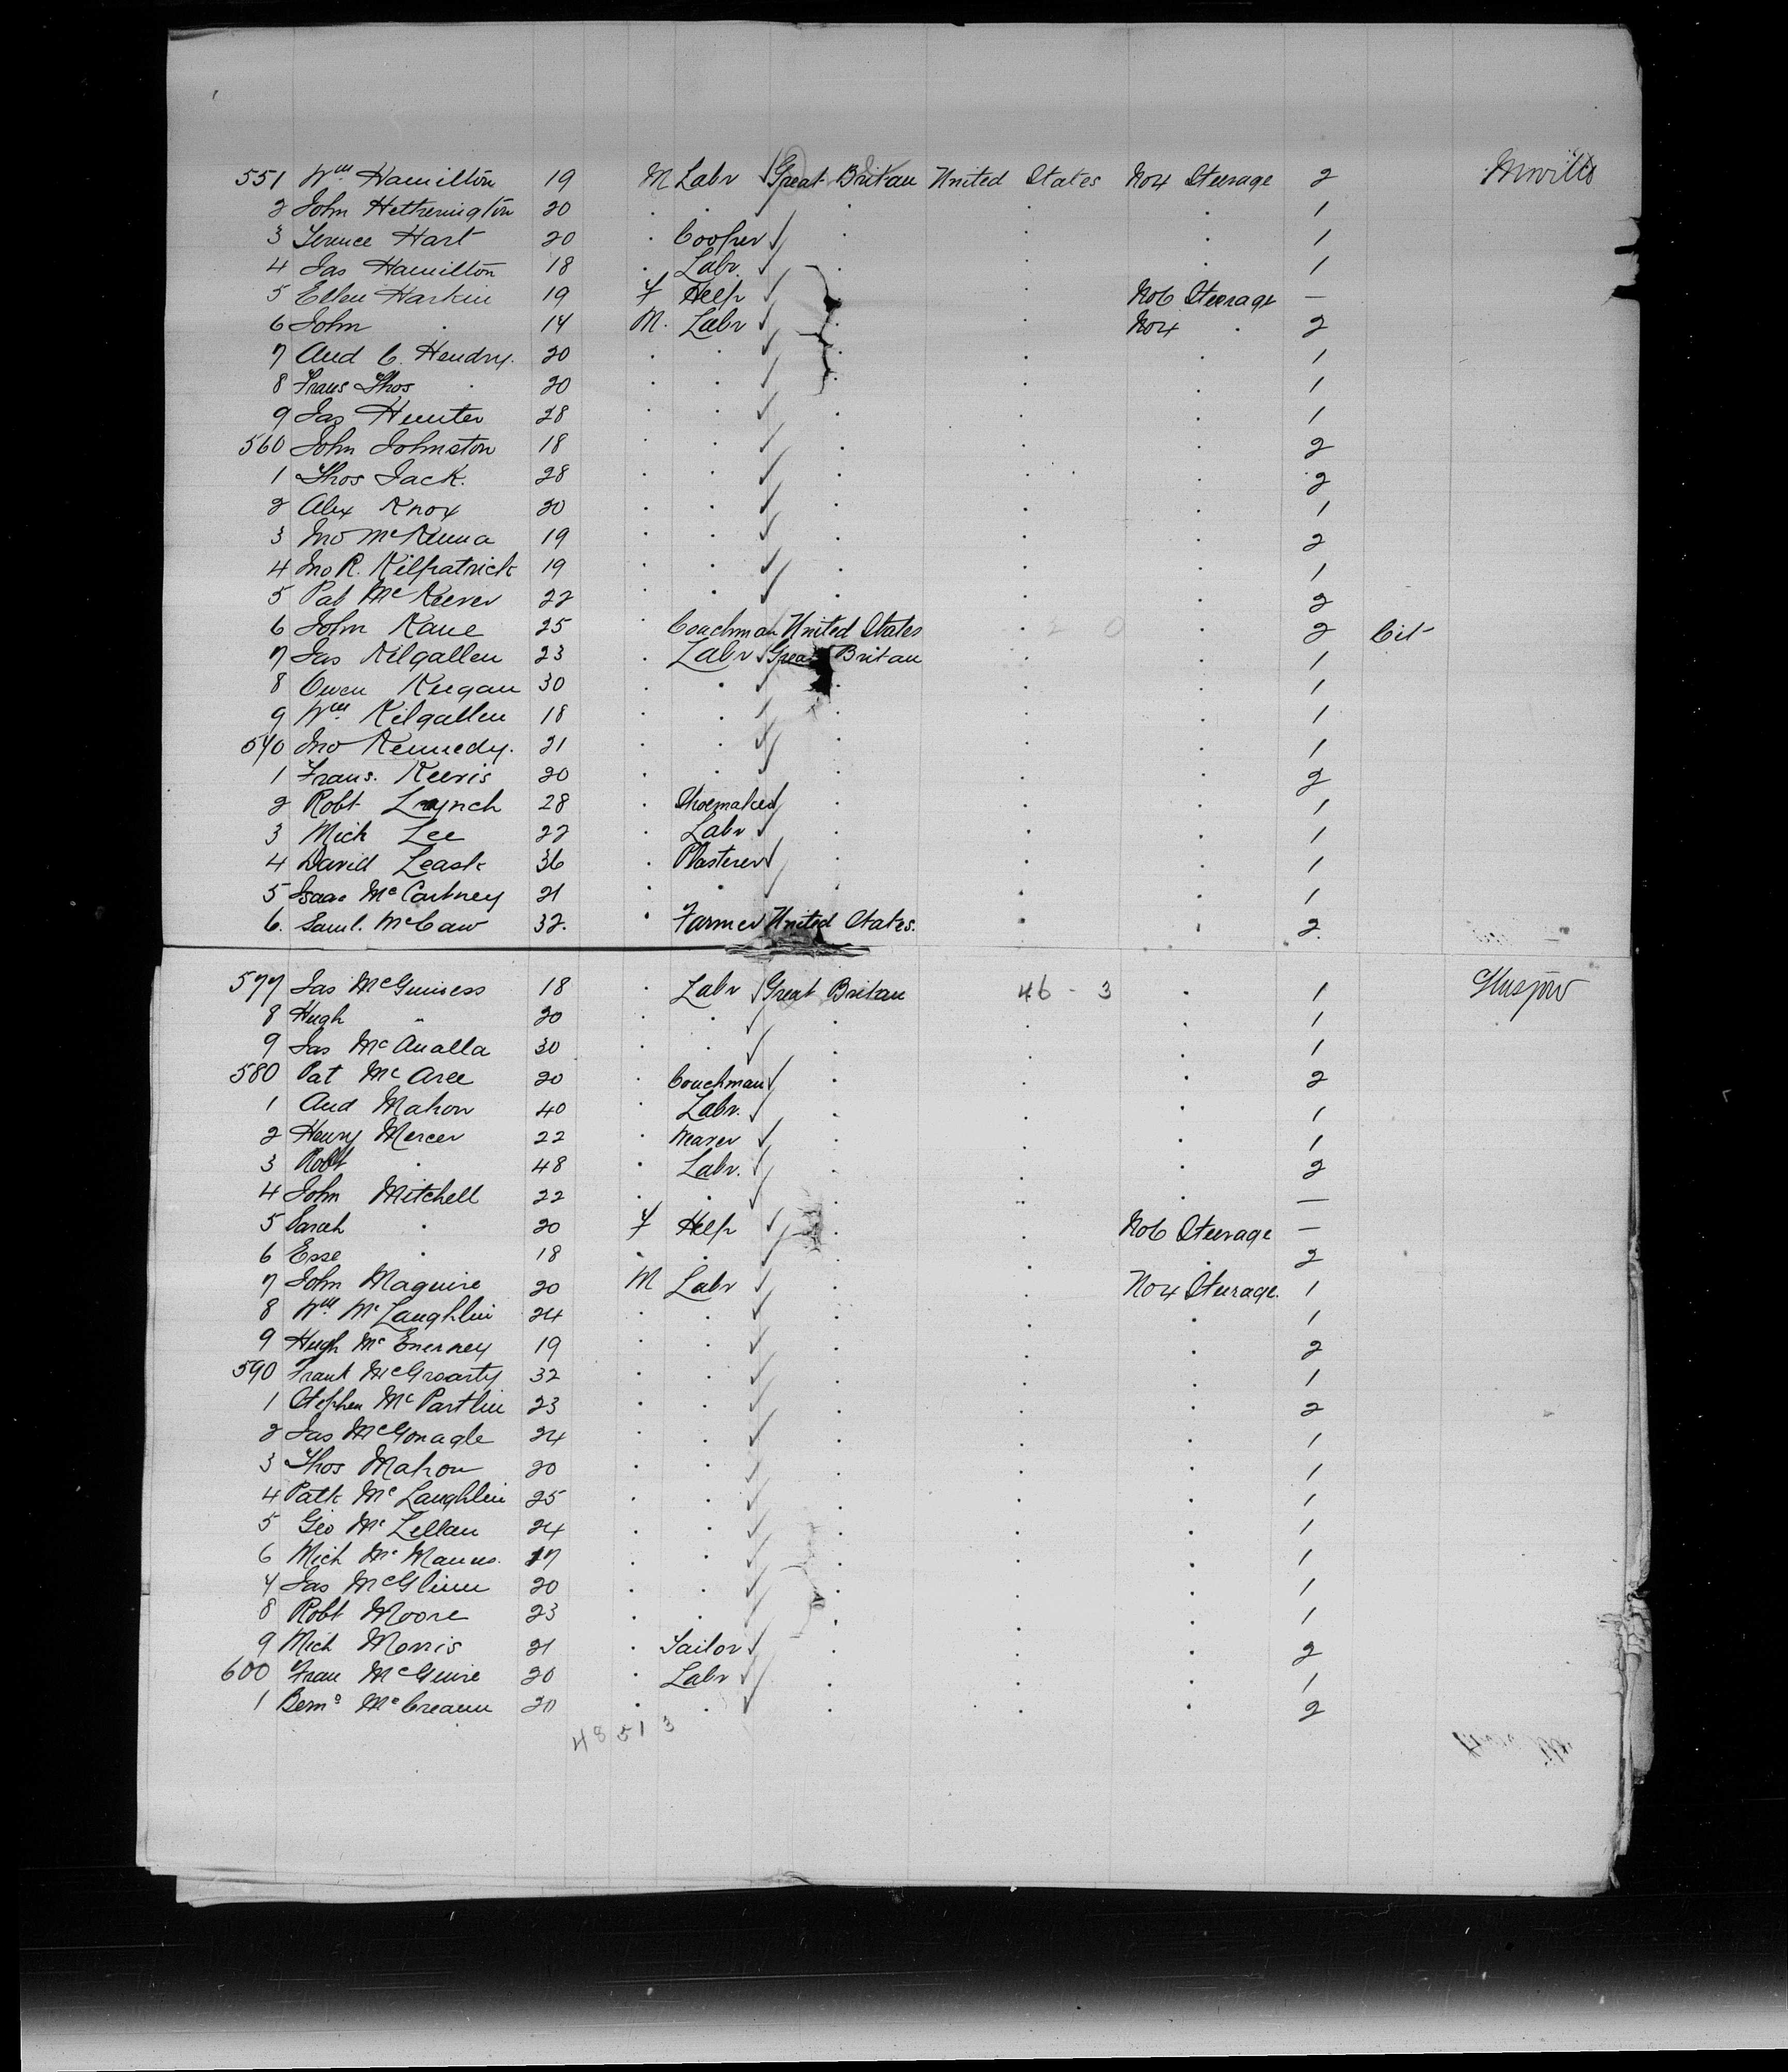 551 Wm Hamilton 19 M Labr Great Britan United States No 4 Steerage 2
2 John Hetherington 20 . . . . . 1
3 Terence Hart 20 . Cooper . . . 1
4 Jas Hamilton 18 . Labr. . . . 1
5 Ellen Harkin 19 F Help . . No 6 Steerage —
6 John . 14 M. Labr . . No 4 . 2
7 And C. Hendry. 20 . . . . . 1
8 Frans Thos . 20 . . . . . 1
9 Jas Hunter 28 . . . . . 1
560 John Johnston 18 . . . . . 2
1 Thos Jack. 28 . . . . . 2
2 Alex Knox 20 . . . . . 1
3 Jno McKenna 19 . . . . . 2
4 Jno R. Kilpatrick 19 . . . . . 1
5 Pat McKeever 22 . . . . . 2
6 John Kane 25 . Coachman United States . 2 0 . 2 Cit
7 Jas Kilgallen 23 . Labr Great Britan . . 1
8 Owen Keegan 30 . . . . . 1
9 Wm Kilgallen 18 . . . . . 1
570 Jno Kennedy. 21 . . . . . 1
1 Frans. Keevis 20 . . . . . 2
2 Robt Lynch 28 . Shoemaker . . . 1
3 Mich Lee 22 . Labr . . . 1
4 David Leask 36 . Plasterer . . . 1
5 Isaac McCartney 21 . . . . . 1
6. Saml. McCaw 32. . Farmer United States. . . 2.
577 Jas McGuiness 18 . Labr Great Britan 46 - 3 . 1
8 Hugh " 20 . . . . 1
9 Jas McAnalla 30 . . . . . 1
580 Pat McAree 20 . Coachman . . . 2
1 And Mahon 40 . Labr. . . . 1
2 Henry Mercer 22 . Weaver . . . 1
3 Robt . 48 . Labr. . . . 2
4 John Mitchell 22 . . . . . —
5 Sarah . 20 F Help . . No 6 Steerage —
6 Esse . 18 . . . . . 2
7 John Maguire 20 M Labr . . No 4 Steerage. 1
8 Wm McLaughlin 24 . . . . . 1
9 Hugh McEnerney 19 . . . . . 2
590 Frank McGroarty 32 . . . . . 1
1 Stephen McPartlin 23 . . . . . 2
2 Jas McGonagle 24 . . . . . 1
3 Thos Mahon 20 . . . . . 1
4 Patk McLaughlin 25 . . . . . 1
5 Geo McLellan 24 . . . . . 1
6 Mich McManus. 17 . . . . . 1
7 Jas McGlinn 20 . . . . . 1
8 Robt Moore 23 . . . . . 1
9 Mich Morris 21 . Tailor . . . 2
600 Fran McGuire 20 . Labr . . . 1
1 Bernd McCreann 20 . . . . . 2
48 51 3